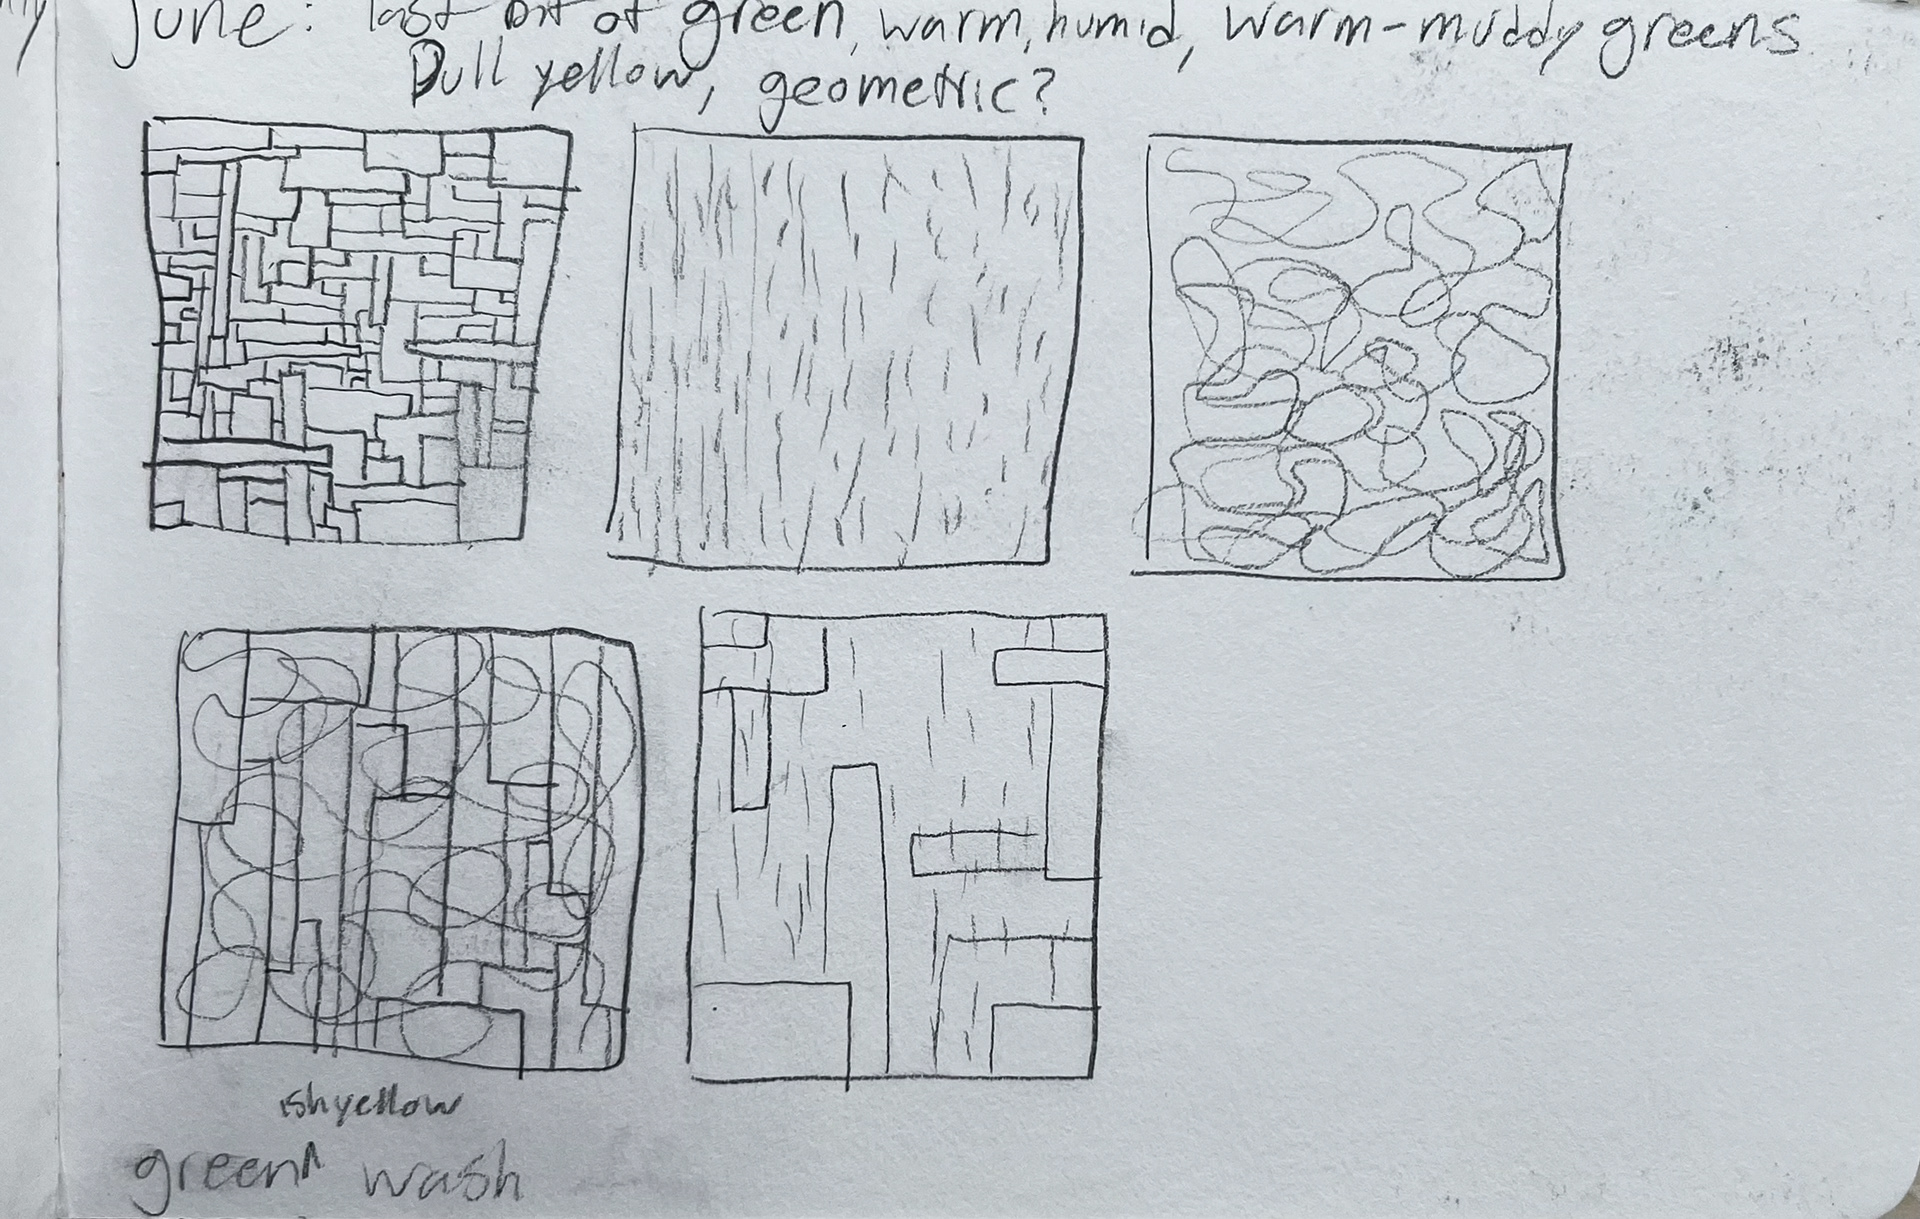 June: last bit of green, warm, humid, warm-muddy greens
Dull yellow, geometric?
ishyellow
green^ wash